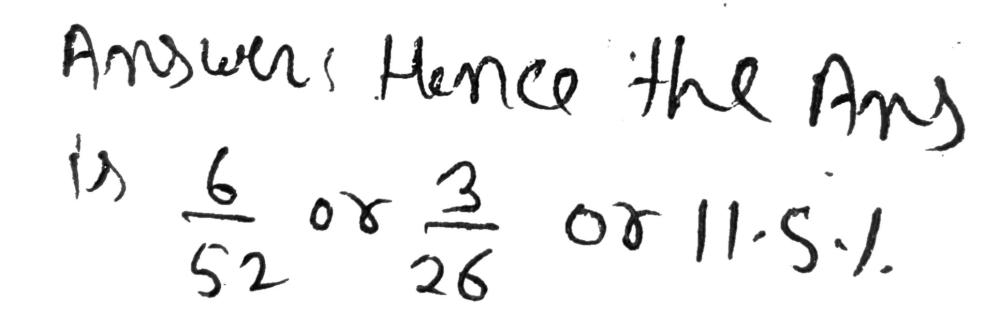 Answer: Hence the Ans
is 6/52 or 3/26 or 11.5%